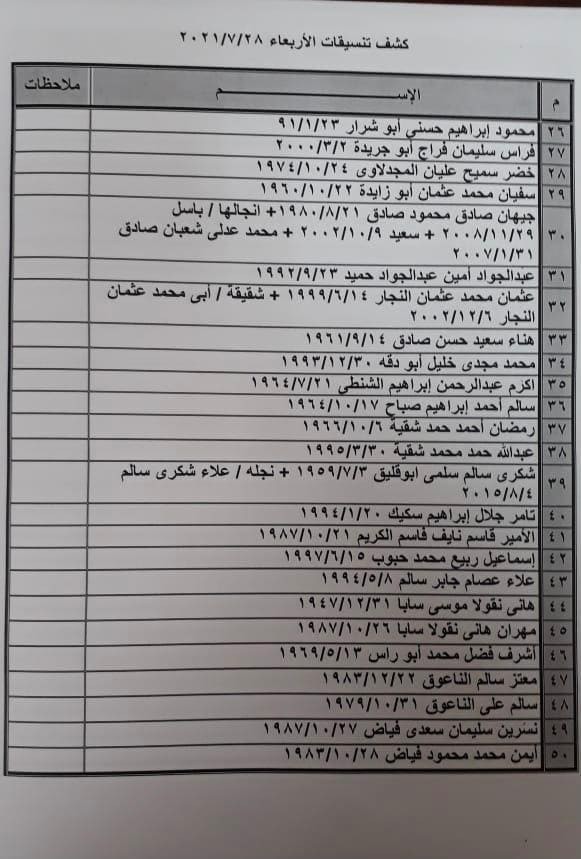 كشف تنسيقات الأربعاء ٢٠٢١/٧/٢٨
م الإســـــــم ملاحظات
٢٦ محمود إبراهيم حسني أبو شرار ٩١/١/٢٣
٢٧ فراس سليمان فراج أبو جريدة ٢٠٠٠/٣/٢
٢٨ خضر سميح عليان المجدلاوى ١٩٧٤/١٠/٢٤
٢٩ سفيان محمد عثمان أبو زايدة ١٩٦٠/١٠/٢٢
جيهان صادق محمود صادق ١٩٨٠/٨/٢١+ انجالها / باسل
٣٠ ٢٠٠٨/١١/٢٩ + سعيد ٢٠٠٢/١٠/٩ + محمد عدلى شعبان صادق
٢٠٠٧/١/٣١
٣١ عبدالجواد أمين عبدالجواد حميد ١٩٩٢/٩/٢٣
٣٢ عثمان محمد عثمان النجار ١٩٩٩/٦/١٤ + شقيقة / أبى محمد عثمان
النجار ٢٠٠٢/١٢/٦
٣٣ هناء سعيد حسن صادق ١٩٦١/٩/١٤
٣٤ محمد مجدى خليل أبو دقه ١٩٩٣/١٢/٣٠
٣٥ اكرم عبدالرحمن إبراهيم الشنطي ١٩٦٤/٧/٢١
٣٦ سالم أحمد إبراهيم صباح ١٩٦٤/١٠/١٧
٣٧ رمضان أحمد حمد شقية ١٩٦٦/١٠/٦
٣٨ عبدالله حمد محمد شقية ١٩٩٥/٣/٣٠
٣٩ شكرى سالم سلمى ابوقليق ١٩٥٩/٧/٣ + نجله / علاء شكرى سالم
٢٠١٥/٨/٤
٤٠ تامر جلال إبراهيم سكيك ١٩٩٤/١/٢٠
٤١ الأمير قاسم نايف قاسم الكريم ١٩٨٧/١٠/٢١
٤٢ إسماعيل ربيع محمد حبوب ١٩٩٧/٦/١٥
٤٣ علاء عصام جابر سالم ١٩٩٤/٥/٨
٤٤ هانى نقولا موسى سابا ١٩٤٧/١٢/٣١
٤٥ مهران هانى نقولا سابا ١٩٨٧/١٠/٢٦
٤٦ أشرف فضل محمد أبو راس ١٩٦٩/٥/١٣
٤٧ معتز سالم الناعوق ١٩٨٣/١٢/٢٢
٤٨ سالم على الناعوق ١٩٧٩/١٠/٣١
٤٩ نسرين سليمان سعدى فياض ١٩٨٧/١٠/٢٧
٥٠ أيمن محمد محمود فياض ١٩٨٣/١٠/٢٨